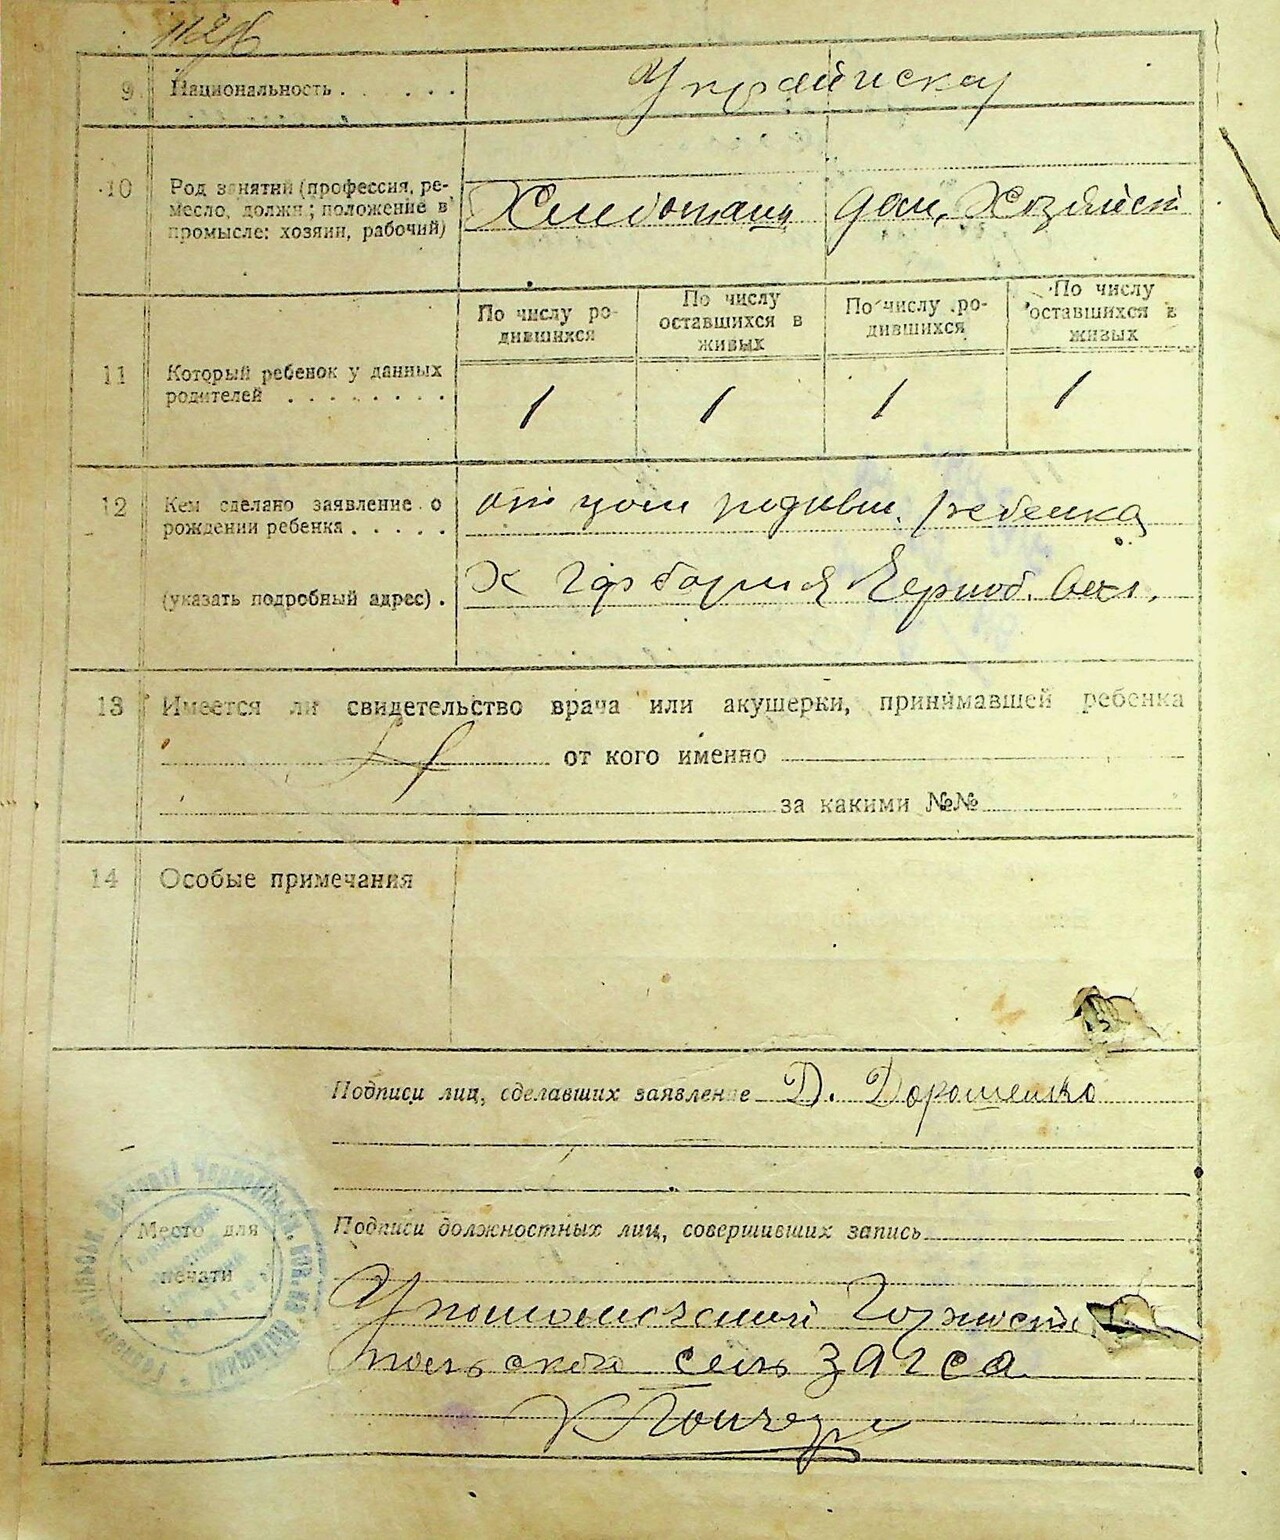 9 Национальность . . . . . . Украинская
10 Род занятий (профессия, ре-
месло, должн.; положение в
промысле: хозяин, рабочий)
Хлебопашц дом. Хозяйст
По числу ро-
дившихся
По числу
оставшихся в
живых
По числу ро-
дившихся
По числу
оставшихся в
живых
11 Который ребенок у данных
родителей . . . . . . . .
1 1 1 1
12 Кем сделано заявление о
рождении ребенка . . . . .
родивш. ребенка
(указать подробный адрес) .
13 Имеется ли свидетельство врача или акушерки, принимавшей ребенка
от кого именно
за какими №№
14 Особые примечания
Подписи лиц, сделавших заявление Д. Дорошенко
Место для
печати
Подписи должностных лиц, совершивших запись
сель загса